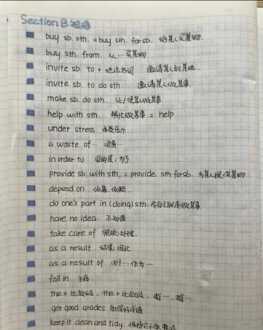 Section B 短语
buy sb. sth. = buy sth. for sb. 给某人买某物
buy sth. from 从…买某物
invite sb. to + 地点名词 邀请某人到某地
invite sb. to do sth. 邀请某人做某事
make sb. do sth. 让/使某人做某事
help with sth. 帮忙做某事 = help
under stress
a waste of 浪费
in order to 为了
provide sb. with sth. = provide sth. for sb. 为某人提供某物
depend on 依靠
do one's part in (doing) sth.
have no idea 不知道
take care of 照顾
as a result 结果
as a result of 作为
fall in
the + 比较级, the + 比较级 越…越…
get good grades 取得好成绩
keep it clean and tidy